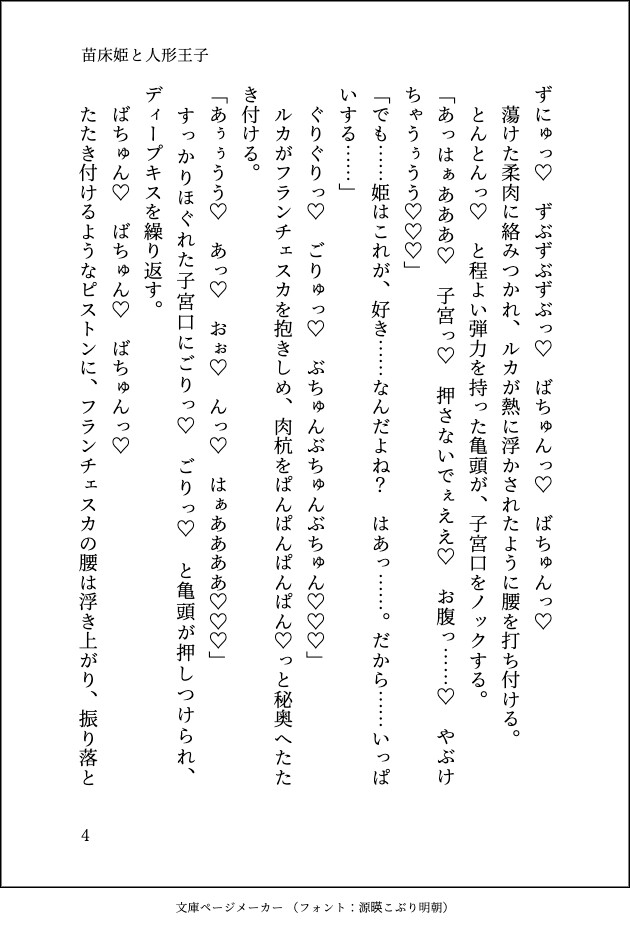 苗床姫と人形王子
ずにゅっ♡　ずぶずぶずぶっ♡　ばちゅんっ♡　ばちゅんっ♡
　蕩けた柔肉に絡みつかれ、ルカが熱に浮かされたように腰を打ち付ける。
　とんとんっ♡　と程よい弾力を持った亀頭が、子宮口をノックする。
「あっはぁあああ♡　子宮っ♡　押さないでぇええ♡　お腹っ……♡　やぶけ
ちゃうぅうう♡♡♡」
「でも……姫はこれが、好き……なんだよね？　はあっ……。だから……いっぱ
いする……」
　ぐりぐりっ♡　ごりゅっ♡　ぶちゅんぶちゅんぶちゅん♡♡♡」
　ルカがフランチェスカを抱きしめ、肉杭をぱんぱんぱんぱん♡っと秘奥へたた
き付ける。
「あぅぅうう♡　あっ♡　おぉ♡　んっ♡　はぁああああ♡♡♡」
　すっかりほぐれた子宮口にごりっ♡　ごりっ♡　と亀頭が押しつけられ、
ディープキスを繰り返す。
　ばちゅん♡　ばちゅん♡　ばちゅんっ♡
　たたき付けるようなピストンに、フランチェスカの腰は浮き上がり、振り落と
4
文庫ページメーカー （フォント：源暎こぶり明朝）